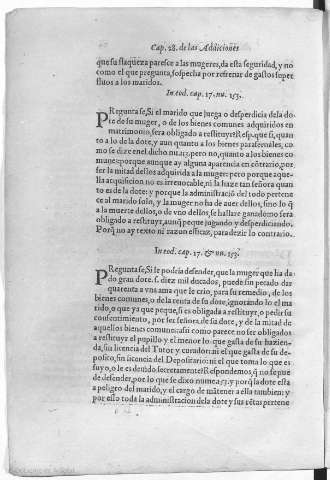 Cap. 28. de las Addiciones
que su flaqueza paresce a las mugeres, da esta seguridad, y no
como el que pregunta, sospecha por refrenar de gastos super
fluos a los maridos.
In eod. cap. 17. nu. 153.
PReguntase, Si el marido que juega o desperdicia dela do-
te de su muger, o de los bienes comunes adquiridos en
matrimonio, sera obligado a restituyr? Resp. que si, quan
to a lo de la dote, y aun quanto a los bienes parafernales, co
mo se dize enel dicho nu. 153. pero no, quanto a los bienes co
munes: porque aunque ay alguna aparencia en cōtrario, por
ser la mitad dellos adquirida a la muger: pero porque aque-
lla acquisicion no es irreuocable, ni la haze tan señora quan
to es de la dote: y porque la administraciō del todo pertene
ce al marido solo, y la muger no ha de auer dellos, sino lo q̄
a la muerte dellos, o de vno dellos se hallare ganado: no sera
obligado a restituyr, aunq̄ peque jugando y desperdiciando.
Porq̄ no ay texto ni razon efficaz, para dezir lo contrario.
In eod. cap. 17. & nu. 153.
PReguntase, Si se podria defender, que la muger que ha da
do gran dote. s. diez mil ducados, puede sin pecado dar
quarenta a vna ama que le crio, para su remedio, de los
bienes comunes, o de la renta de su dote, ignorādo lo el ma
rido, o que ya que peque, si es obligada a restituyr, o pedir su
consentimiento, por ser señora de su dote, y de la mitad de
aquellos bienes comunes: assi como parece no ser obligados
a restituyr el pupillo y el menor lo que gasta de su hazien-
da, sin licencia del Tutor y curador: ni el que gasta de su de-
posito, sin licencia del Depositario: ni el que toma lo que es
suyo, o le es deuido secretamente? Respondemos q̄ no se pue
de defender, por lo que se dixo nume. 153. y porq̄ la dote esta
a peligro del marido, y el cargo de mātener a ella tambien: y
por esso toda la administracion dela dote y sus rētas pertene